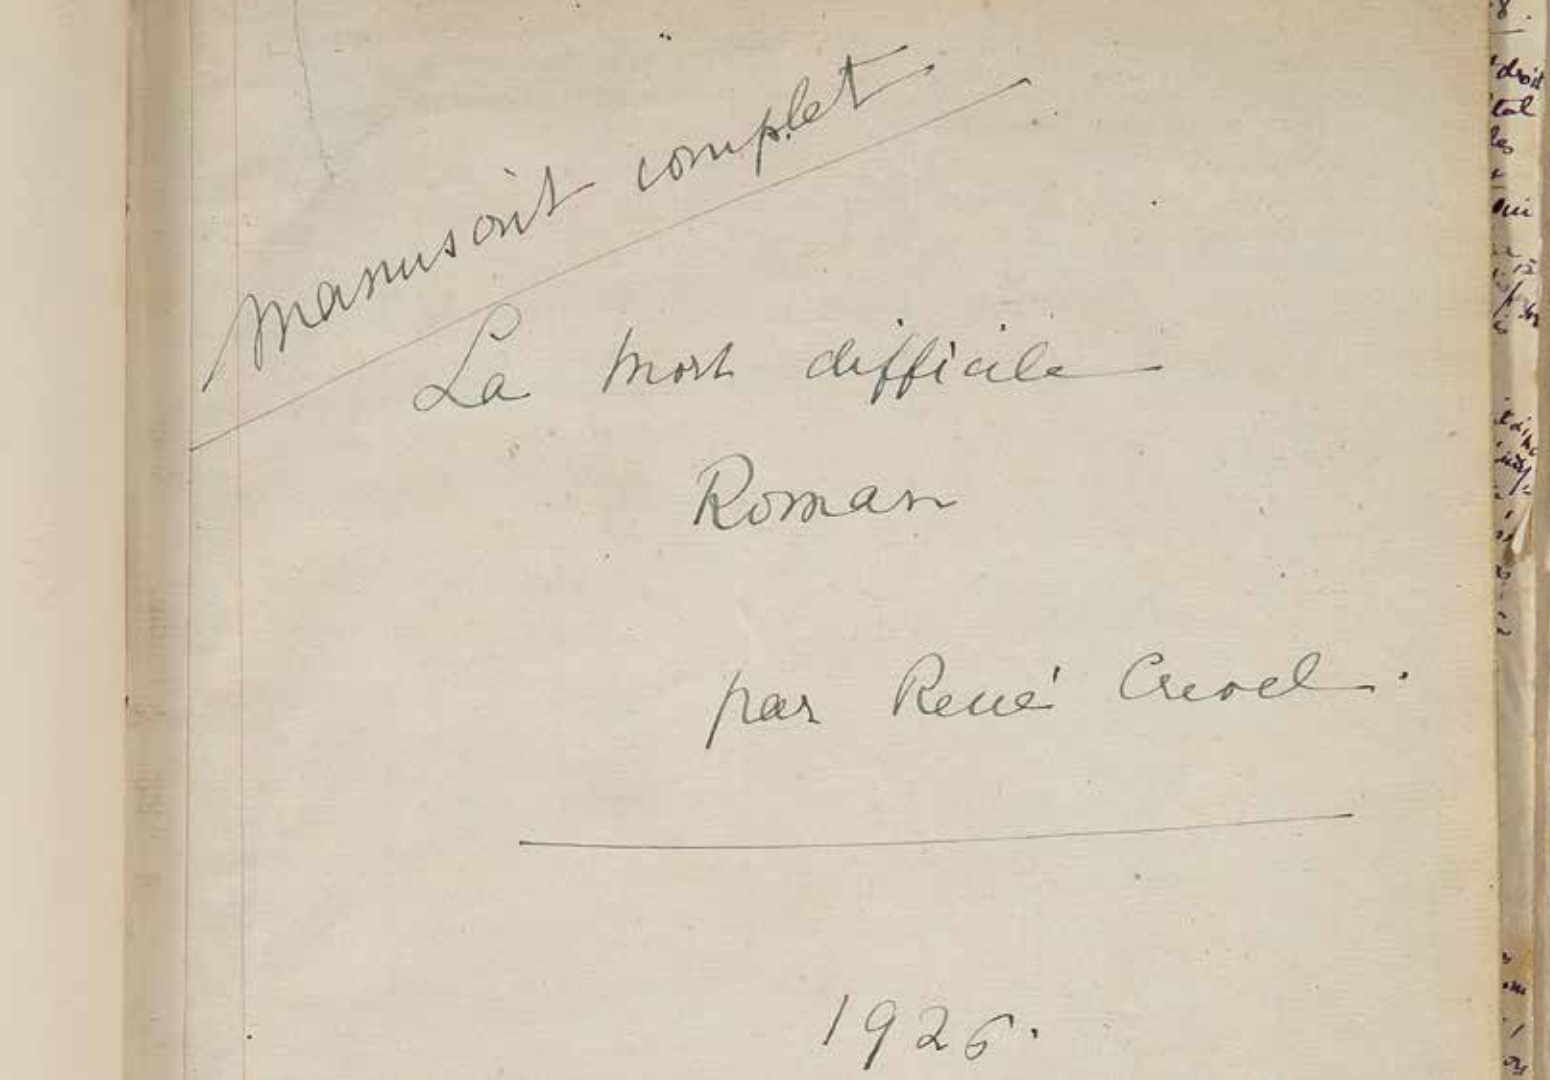 manuscrit complet
La Mort difficile
Roman
par René Crevel.
1926.
droit
tal
les